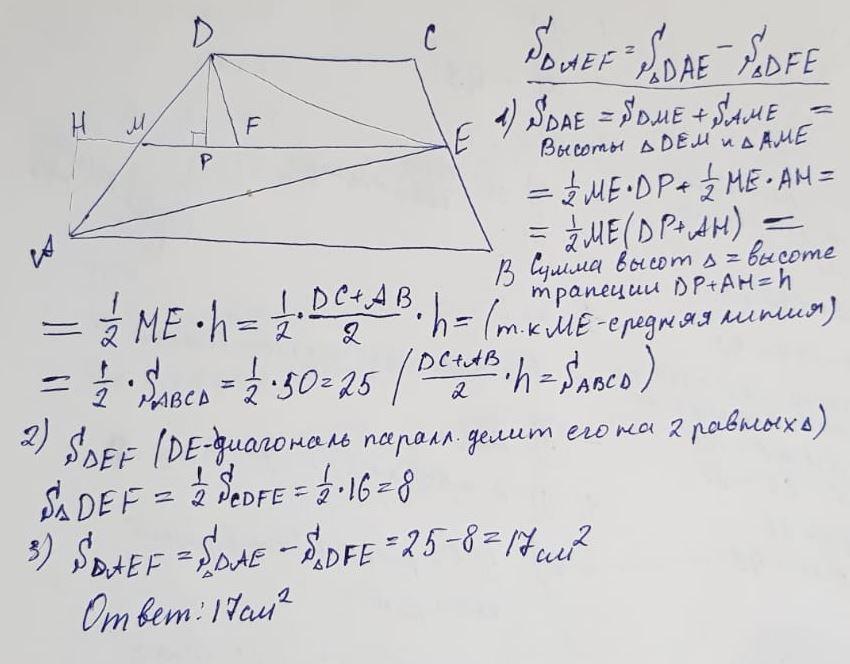 D
C
H
M
F
E
P
A
B
S DAEF = S△DAE - S△DFE
1) S DAE = S DME + S AME =
Высоты △DEM и △AME
= 1/2 ME·DP + 1/2 ME·AH =
= 1/2 ME(DP+AH) =
Сумма высот △ = высоте
трапеции DP+AH=h
= 1/2 ME·h = 1/2 · (DC+AB)/2 · h = (т.к ME-средняя линия)
= 1/2 · S ABCD = 1/2 · 50 = 25 ( (DC+AB)/2 · h = S ABCD )
2) S DEF (DE-диагональ паралл. делит его на 2 равных △)
S△DEF = 1/2 S CDFE = 1/2 · 16 = 8
3) S DAEF = S△DAE - S△DFE = 25-8 = 17 см²
Ответ: 17 см²